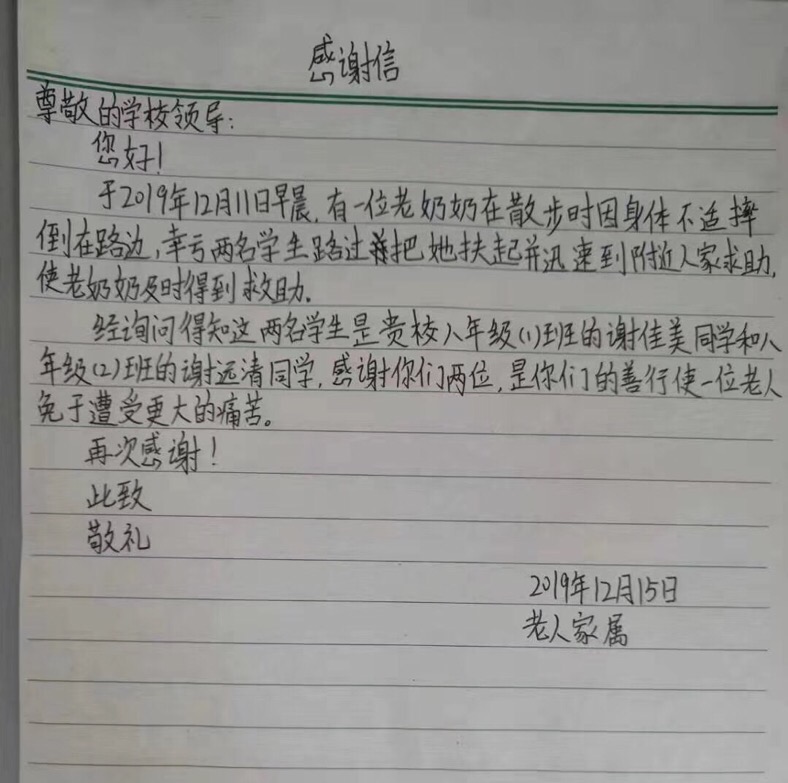 感谢信
尊敬的学校领导:
您好!
于2019年12月11日早晨,有一位老奶奶在散步时因身体不适摔
倒在路边,幸亏两名学生路过把她扶起并迅速到附近人家求助,
使老奶奶及时得到救助.
经询问得知这两名学生是贵校八年级(1)班的谢佳美同学和八
年级(2)班的谢远清同学,感谢你们两位,是你们的善行使一位老人
免于遭受更大的痛苦。
再次感谢!
此致
敬礼
2019年12月15日
老人家属